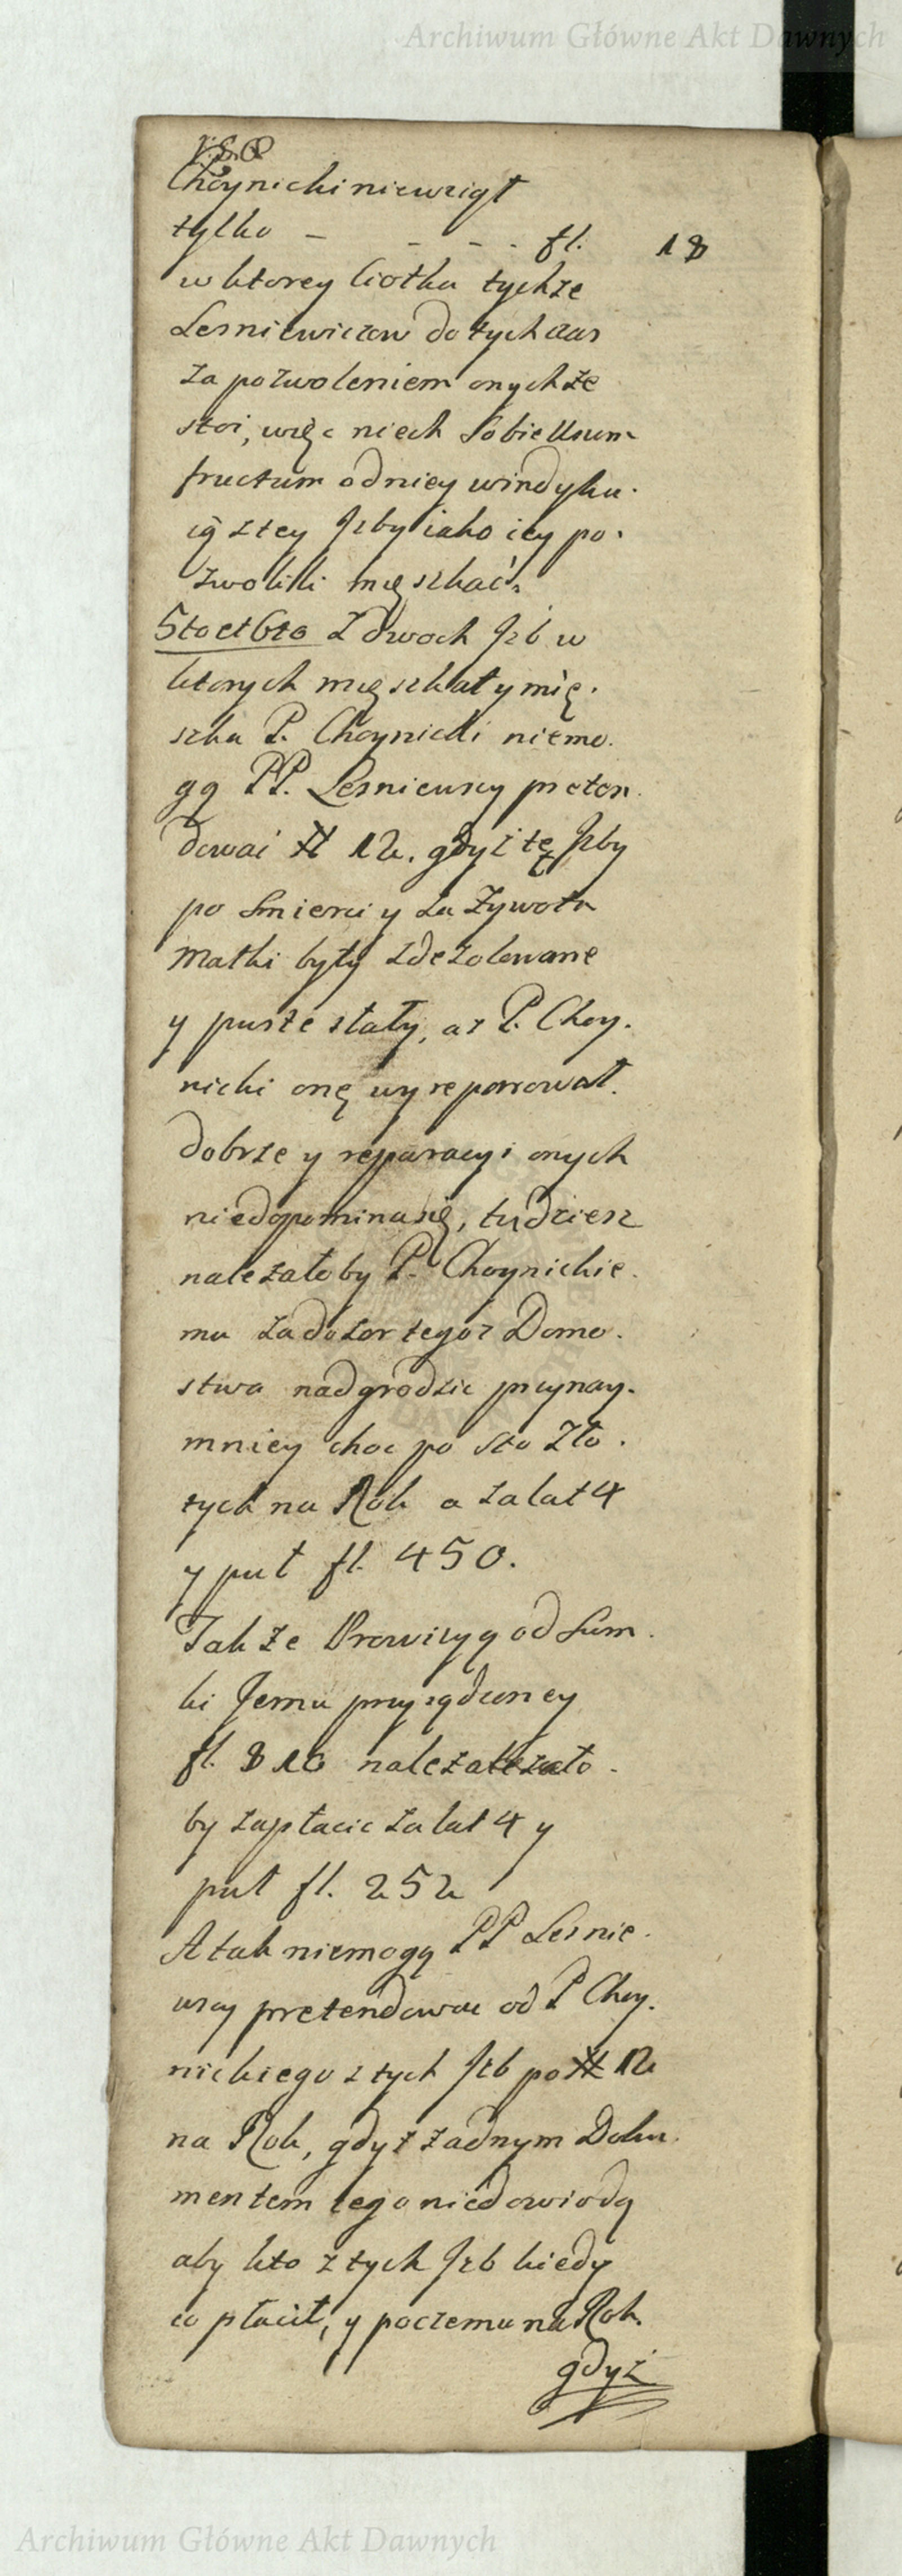 Archiwum Główne Akt Dawnych
Choynicki niewziął
tylko - - - - fl. 18
w ktorey Ciotka tychże
Lesniewiczow do tych czas
za pozwoleniem onychże
stoi, więc niech sobie Usum
fructum od niey windyku.
ią z tey Jzby iako iey po.
zwolili męszkać.
5to et 6to Z dwoch Jzb w
ktorych męszkał y mię.
szka P. Choynicki niemo.
gą PP. Lesniewscy preten.
dować # 12. gdyż tę Jzby
po Smierci y za Zywota
Matki były zdezolowane
y puste stały, aż P. Choy.
nicki onę wyreperował.
dobrze y reparacyi onych
niedopomina się, tudziesz
nalezałoby P. Choynickie.
mu za dozor tegoż Domo.
stwa nadgrodzic przynay.
mniey choc po sto Zło.
tych na Rok a za lat 4
y puł fl. 450.
Także Prowizyą od Sum.
ki Jemu przysądzoney
fl. 810 należałezało.
by zapłacic za lat 4 y
puł fl. 252
A tak niemogą PP Lesnie.
wscy pretendowac od P Choy.
nickiego z tych Jzb po # 12
na Rok, gdyż żadnym Doku.
mentem tego niedowiodą
aby kto z tych Jzb kiedy
co płacił, y poczemu na Rok.
gdyż
Archiwum Główne Akt Dawnych